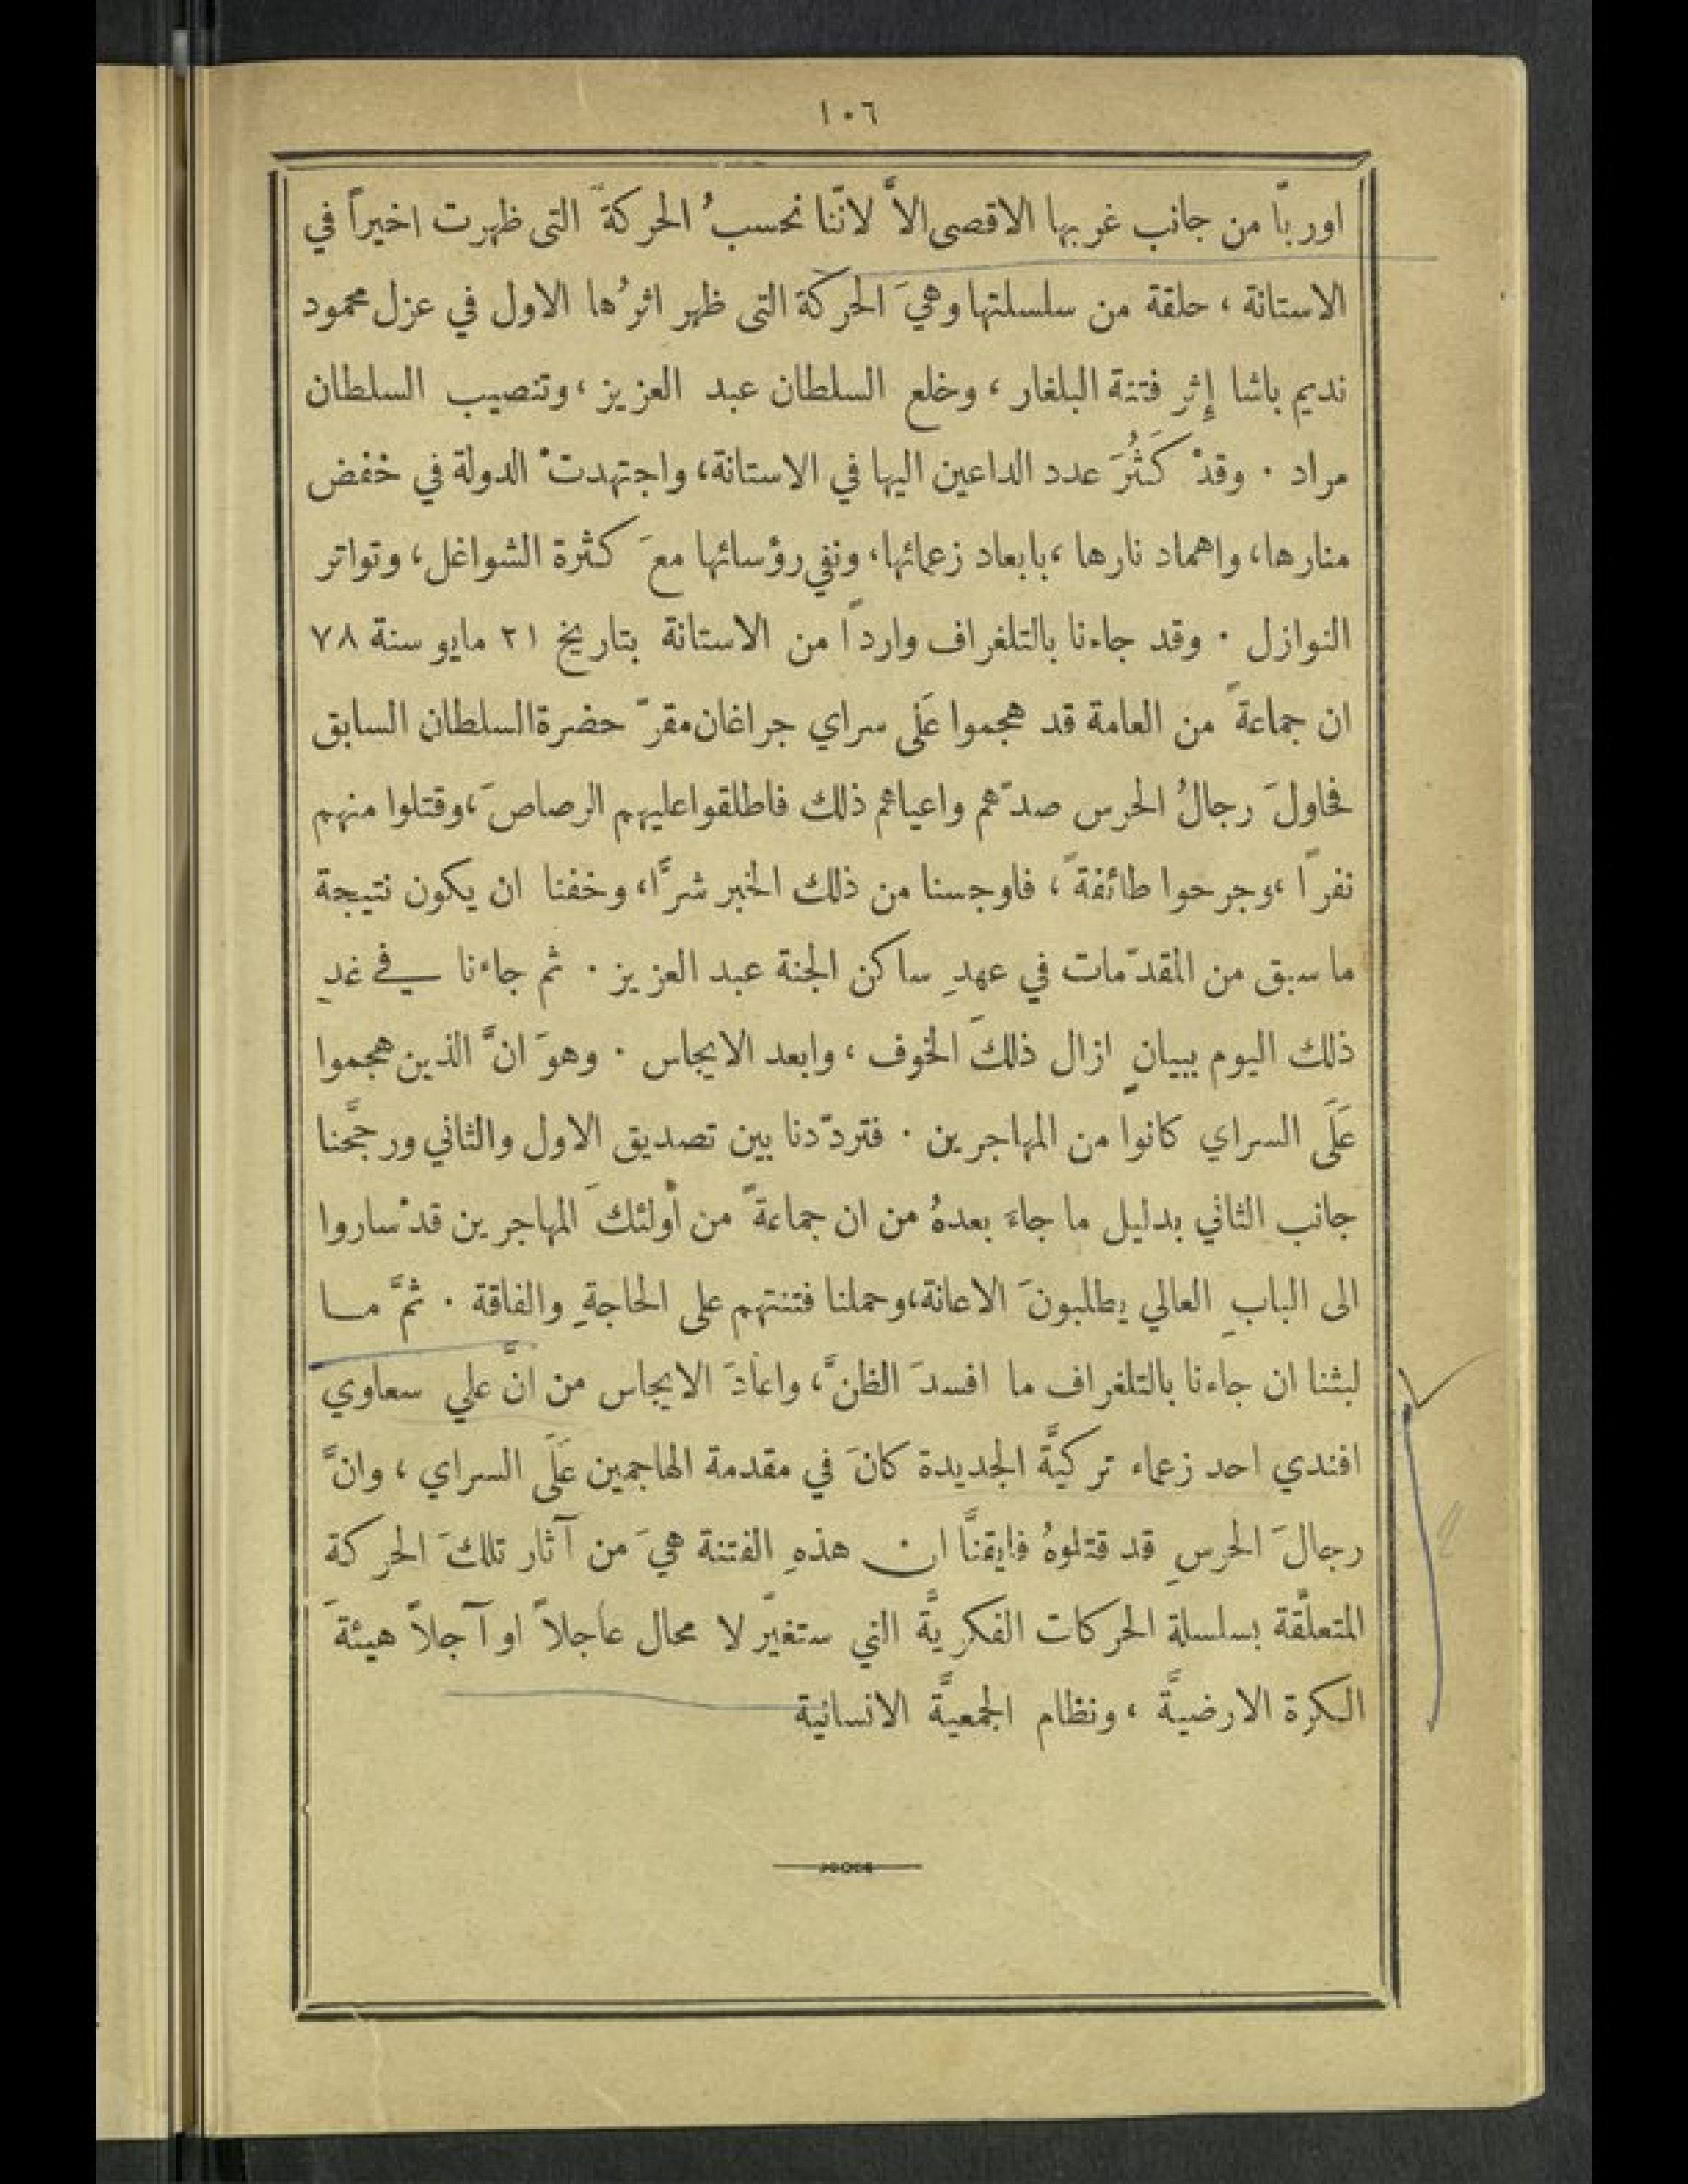 ١٠٦
اوربّا من جانب غربيها الاقصى الاَّ لانّنا نحسبُ الحركةَ التى ظهرت اخيراً في
الاستانة ، حلقة من سلسلتها وهيَ الحركة التى ظهر اثرُها الاول في عزل محمود
نديم باشا إِثر فتنة البلغار ، وخلع السلطان عبد العزيز ، وتنصيب السلطان
مراد . وقدْ كَثُرَ عدد الداعين اليها في الاستانة، واجتهدتْ الدولة في خفض
منارها، واهماد نارها ،بابعاد زعمائها، ونفي رؤسائها معَ كثرة الشواغل، وتواتر
النوازل . وقد جاءنا بالتلغراف وارداً من الاستانة بتاريخ ٢١ مايو سنة ٧٨
ان جماعةً من العامة قد هجموا عَلَى سراي جراغان مقرّ حضرة السلطان السابق
فحاولَ رجالُ الحرس صدّهم واعياهم ذلك فاطلقوا عليهم الرصاصَ ،وقتلوا منهم
نفراً ،وجرحوا طائفةً ، فاوجسنا من ذلك الخبر شرًّا، وخفنا ان يكون نتيجة
ما سبق من المقدّمات في عهدِ ساكن الجنة عبد العزيز . ثم جاءنا في غدِ
ذلك اليوم ببيانٍ ازال ذلكَ الخوف ، وابعد الايجاس . وهوَ انَّ الذين هجموا
عَلَى السراي كانوا من المهاجرين . فتردّدنا بين تصديق الاول والثاني ورجَّحنا
جانب الثاني بدليل ما جاءَ بعدهُ من ان جماعةً من أولئكَ المهاجرين قدْ ساروا
الى البابِ العالي يطلبونَ الاعانة،وحملنا فتنتهم على الحاجةِ والفاقة . ثمَّ ما
لبثنا ان جاءنا بالتلغراف ما افسدَ الظنَّ، واعادَ الايجاس من انَّ علي سعاوي
افندي احد زعماء تركيَّة الجديدة كانَ في مقدمة الهاجمين عَلَى السراي ، وانَّ
رجالَ الحرسِ قد قتلوهُ فايقنَّا ان هذهِ الفتنة هيَ من آثار تلكَ الحركة
المتعلّقة بسلسلة الحركات الفكريَّة التي ستغيّر لا محال عاجلاً او آجلاً هيئةَ
الكرة الارضيَّة ، ونظام الجمعيَّة الانسانية